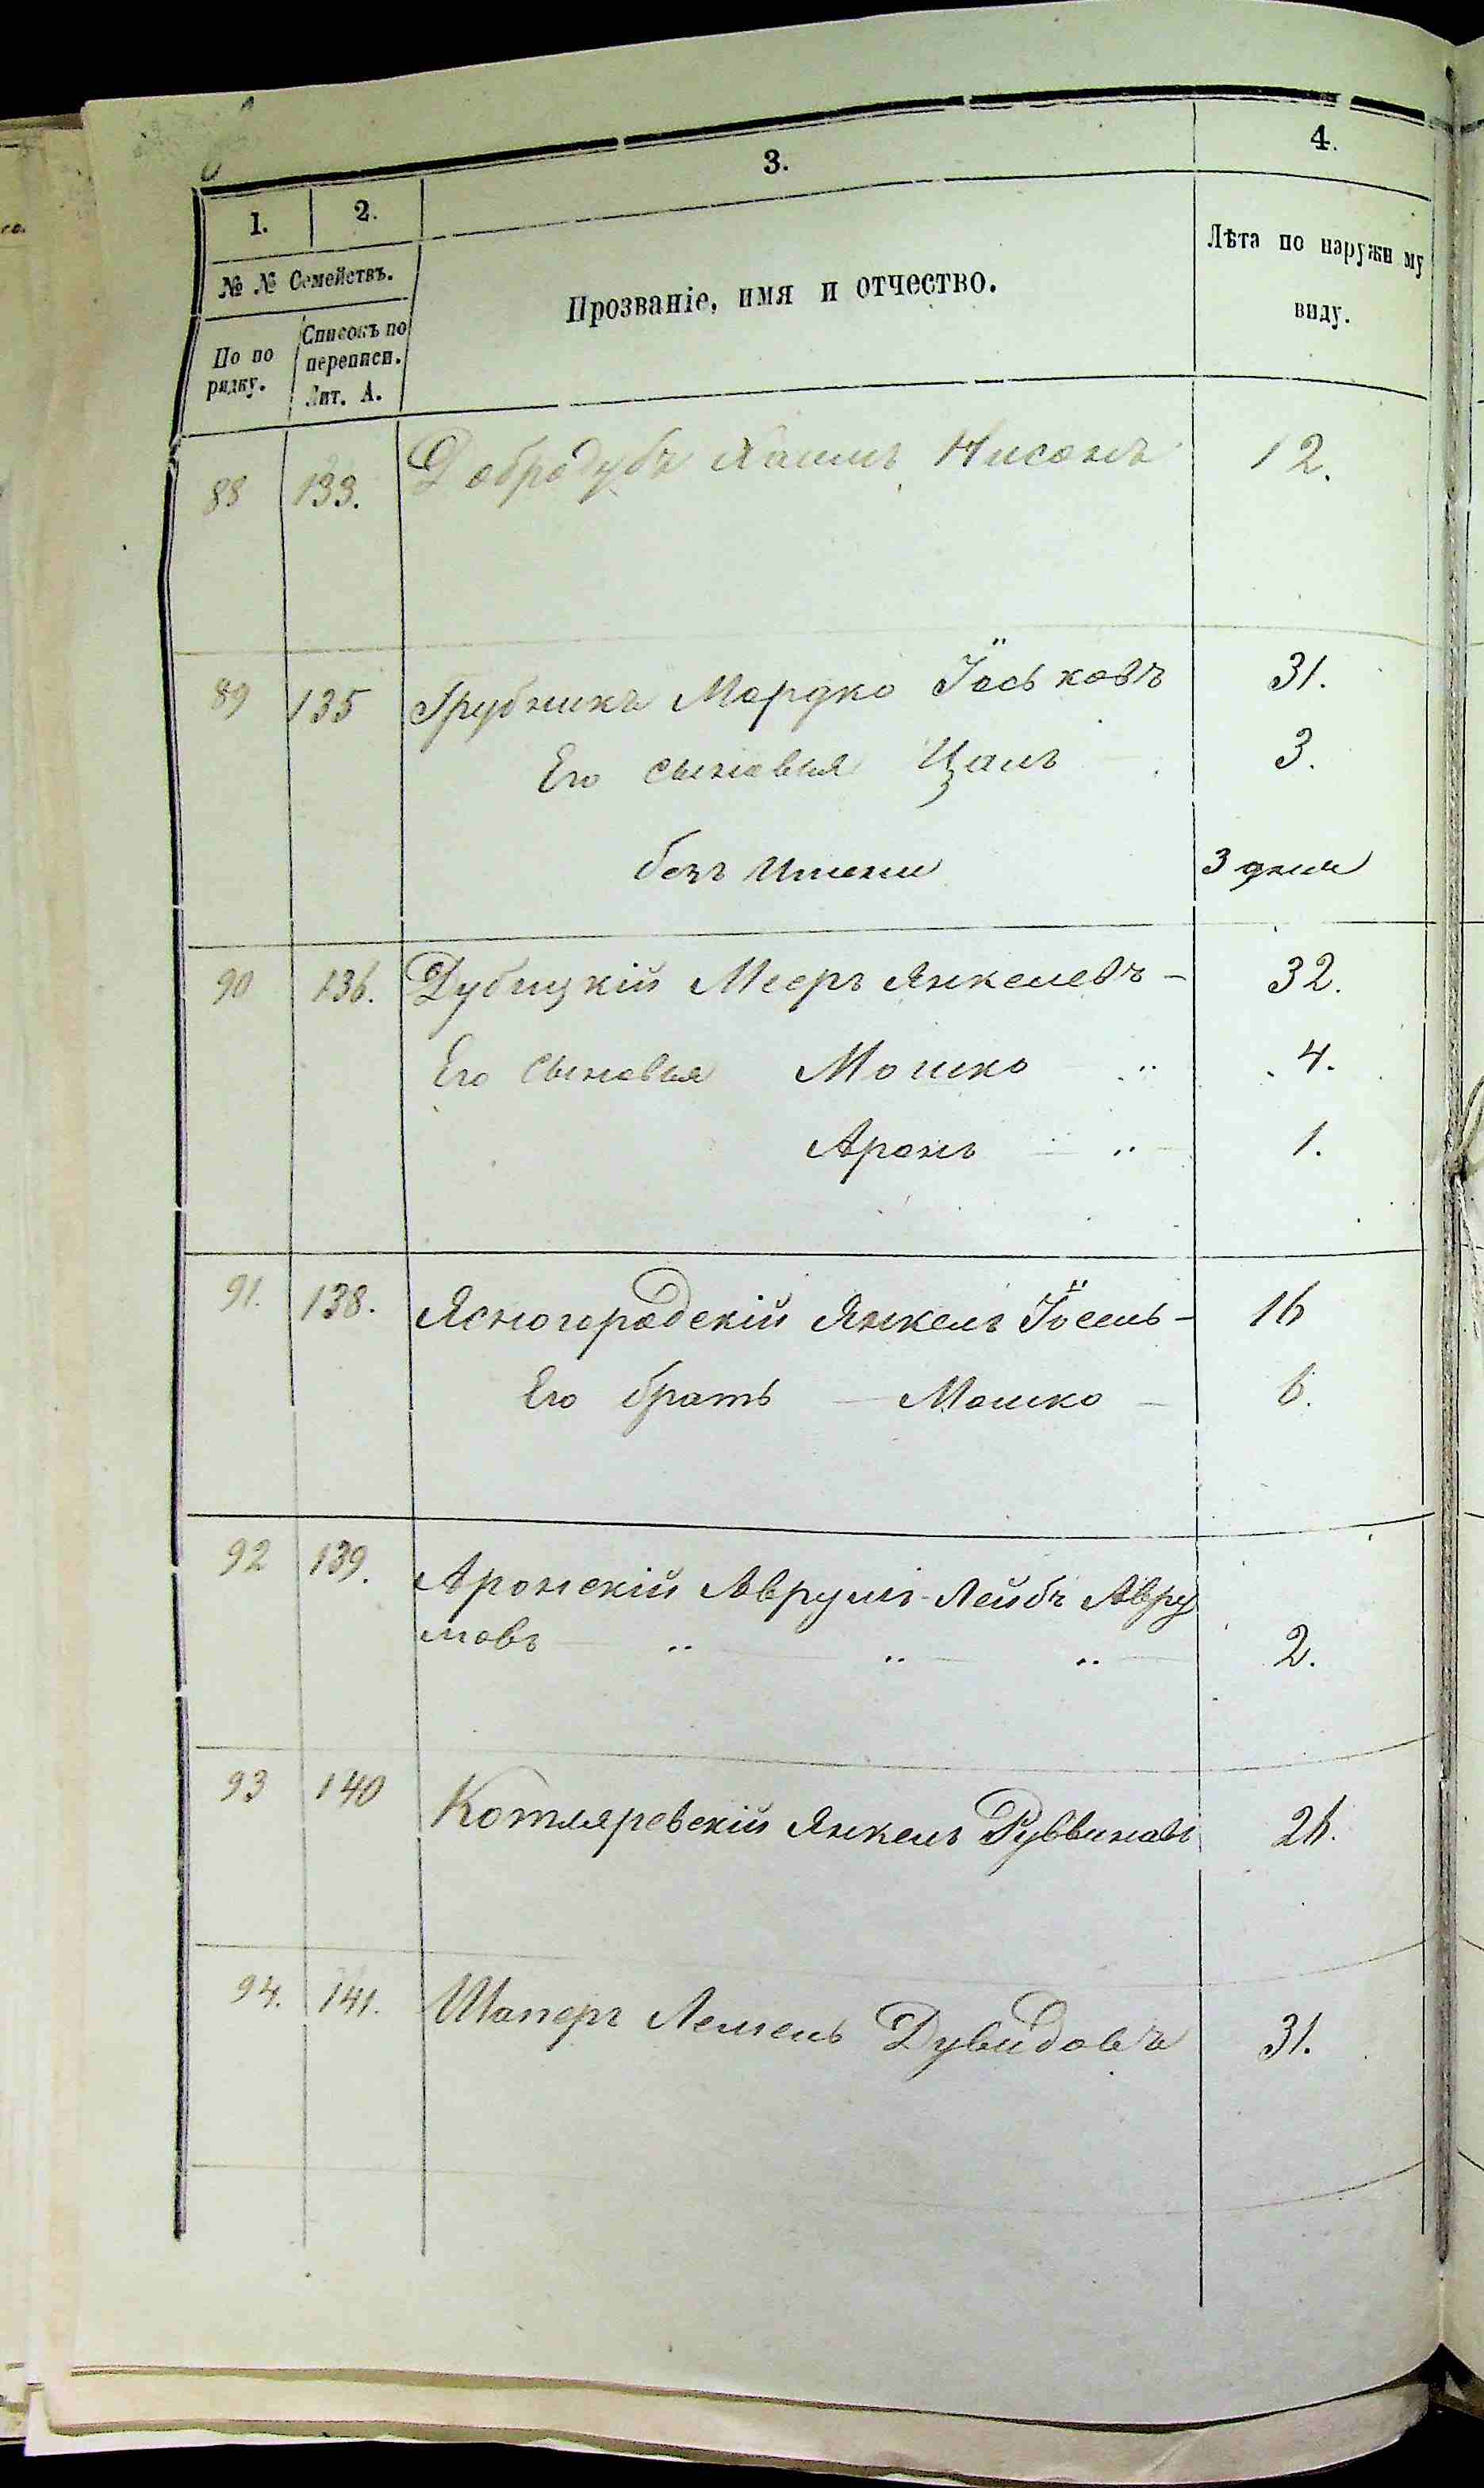 1. 2. 3. 4.
№ № Семействъ.
По по рядку.
Списокъ по переписи. Лит. А.
Прозваніе, имя и отчество.
Лѣта по наружн му виду.
88 133. Добродубъ Хаимъ Нисонъ 12.
89 135 Грубникъ Мордко Іось ковъ 31.
Его сыновья Цаль 3.
безъ имени 3 дня
90 136. Дубицкій Мееръ Янкелевъ - 32.
Его сыновья Мошко 4.
Аронъ 1.
91. 138. Ясногородскій Янкель Іосель - 16
Его братъ Мошко 6.
92 139. Аронскій Аврумъ-Лейбъ Авру
мовъ 2.
93 140 Котляревскій Янкель Рувиновъ 26.
94. 141. Шаперъ Лемель Дувидовъ 31.